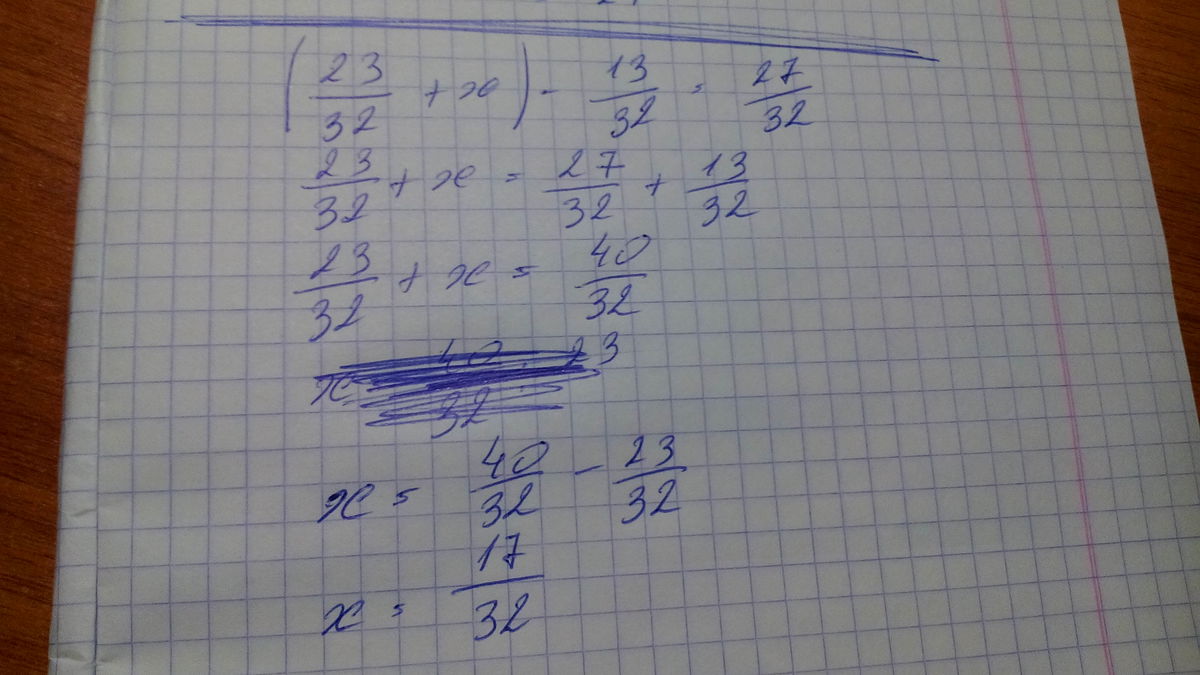 (23/32 + x) - 13/32 = 27/32
23/32 + x = 27/32 + 13/32
23/32 + x = 40/32
x = 40/32 - 23/32
x = 17/32